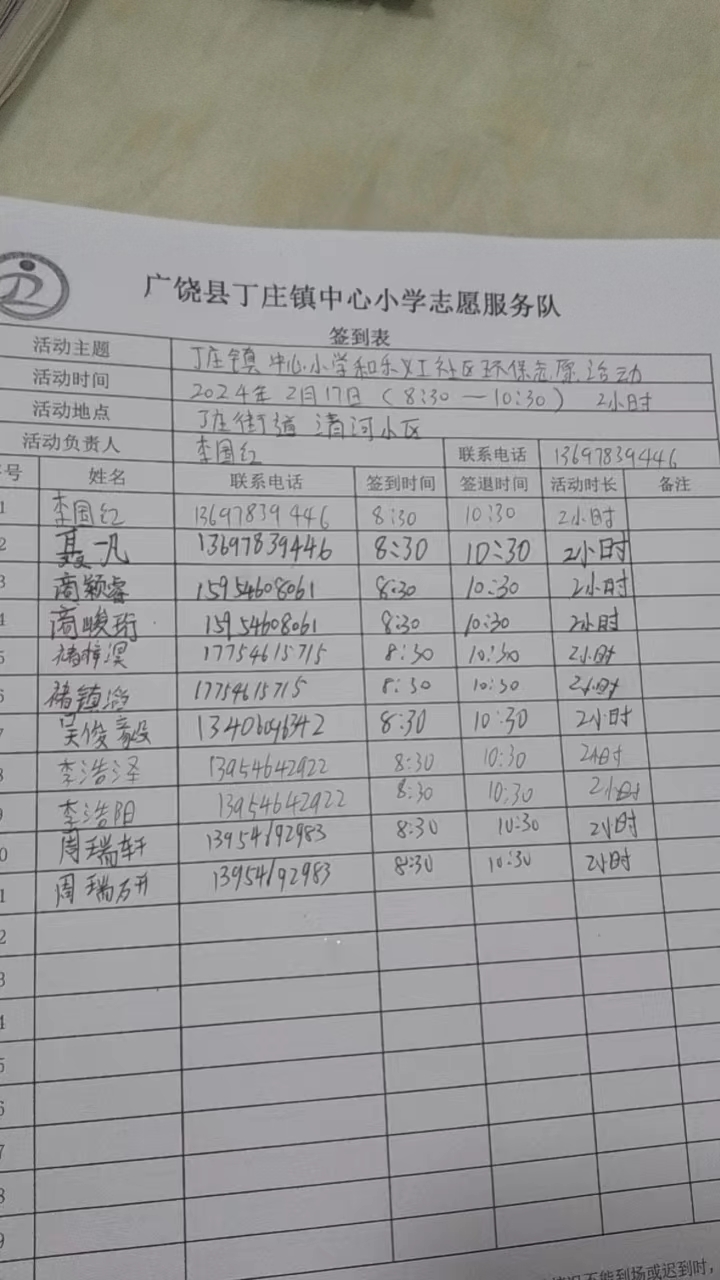 广饶县丁庄镇中心小学志愿服务队
签到表
活动主题 丁庄镇中心小学和乐义工社区环保志愿活动
活动时间 2024年2月17日（8:30—10:30） 2小时
活动地点 丁庄街道 清河小区
活动负责人 李国红 联系电话 13697839446
号 姓名 联系电话 签到时间 签退时间 活动时长 备注
1 李国红 13697839446 8:30 10:30 2小时
2 聂一凡 13697839446 8:30 10:30 2小时
3 商颖睿 15954608061 8:30 10:30 2小时
4 商峻珩 15954608061 8:30 10:30 2小时
5 褚梓淏 17754615715 8:30 10:30 2小时
6 褚镇滔 17754615715 8:30 10:30 2小时
7 吴俊毅 13406096342 8:30 10:30 2小时
8 李浩泽 13954642922 8:30 10:30 2小时
9 李浩阳 13954642922 8:30 10:30 2小时
0 周瑞轩 13954192983 8:30 10:30 2小时
1 周瑞妍 13954192983 8:30 10:30 2小时
2
3
4
5
6
7
8
9
情况不能到场或迟到时，